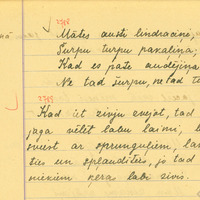 2748
Mātes austi lindraciņi,
Šurpu turpu pakaliņa;
Kad es pate audējiņa
Ne tad šurpu, ne tad t
2749
Kad iet zivju zvejot, tad
jaga vēlēt labu laimi, b
sviest ar sprunguļiem, la
ties un splaudīties, jo tad
mēsiem ķeras labi zivis.